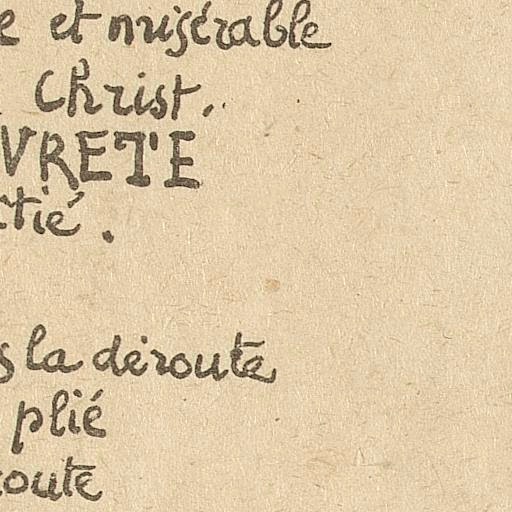 e et misérable
Christ.
VRETE
tié.
s la déroute
plié
route